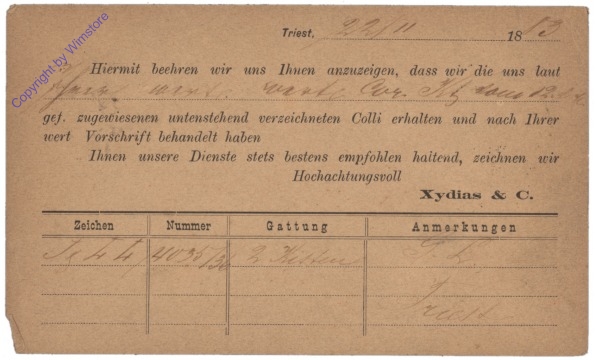 Copyright by Wimstore
Triest, 22/11 1883
Hiermit beehren wir uns Ihnen anzuzeigen, dass wir die uns laut
wert
gef. zugewiesenen untenstehend verzeichneten Colli erhalten und nach Ihrer
wert Vorschrift behandelt haben
Ihnen unsere Dienste stets bestens empfohlen haltend, zeichnen wir
Hochachtungsvoll
Xydias & C.
Zeichen Nummer Gattung Anmerkungen
4035/36 2 Kisten
Triest